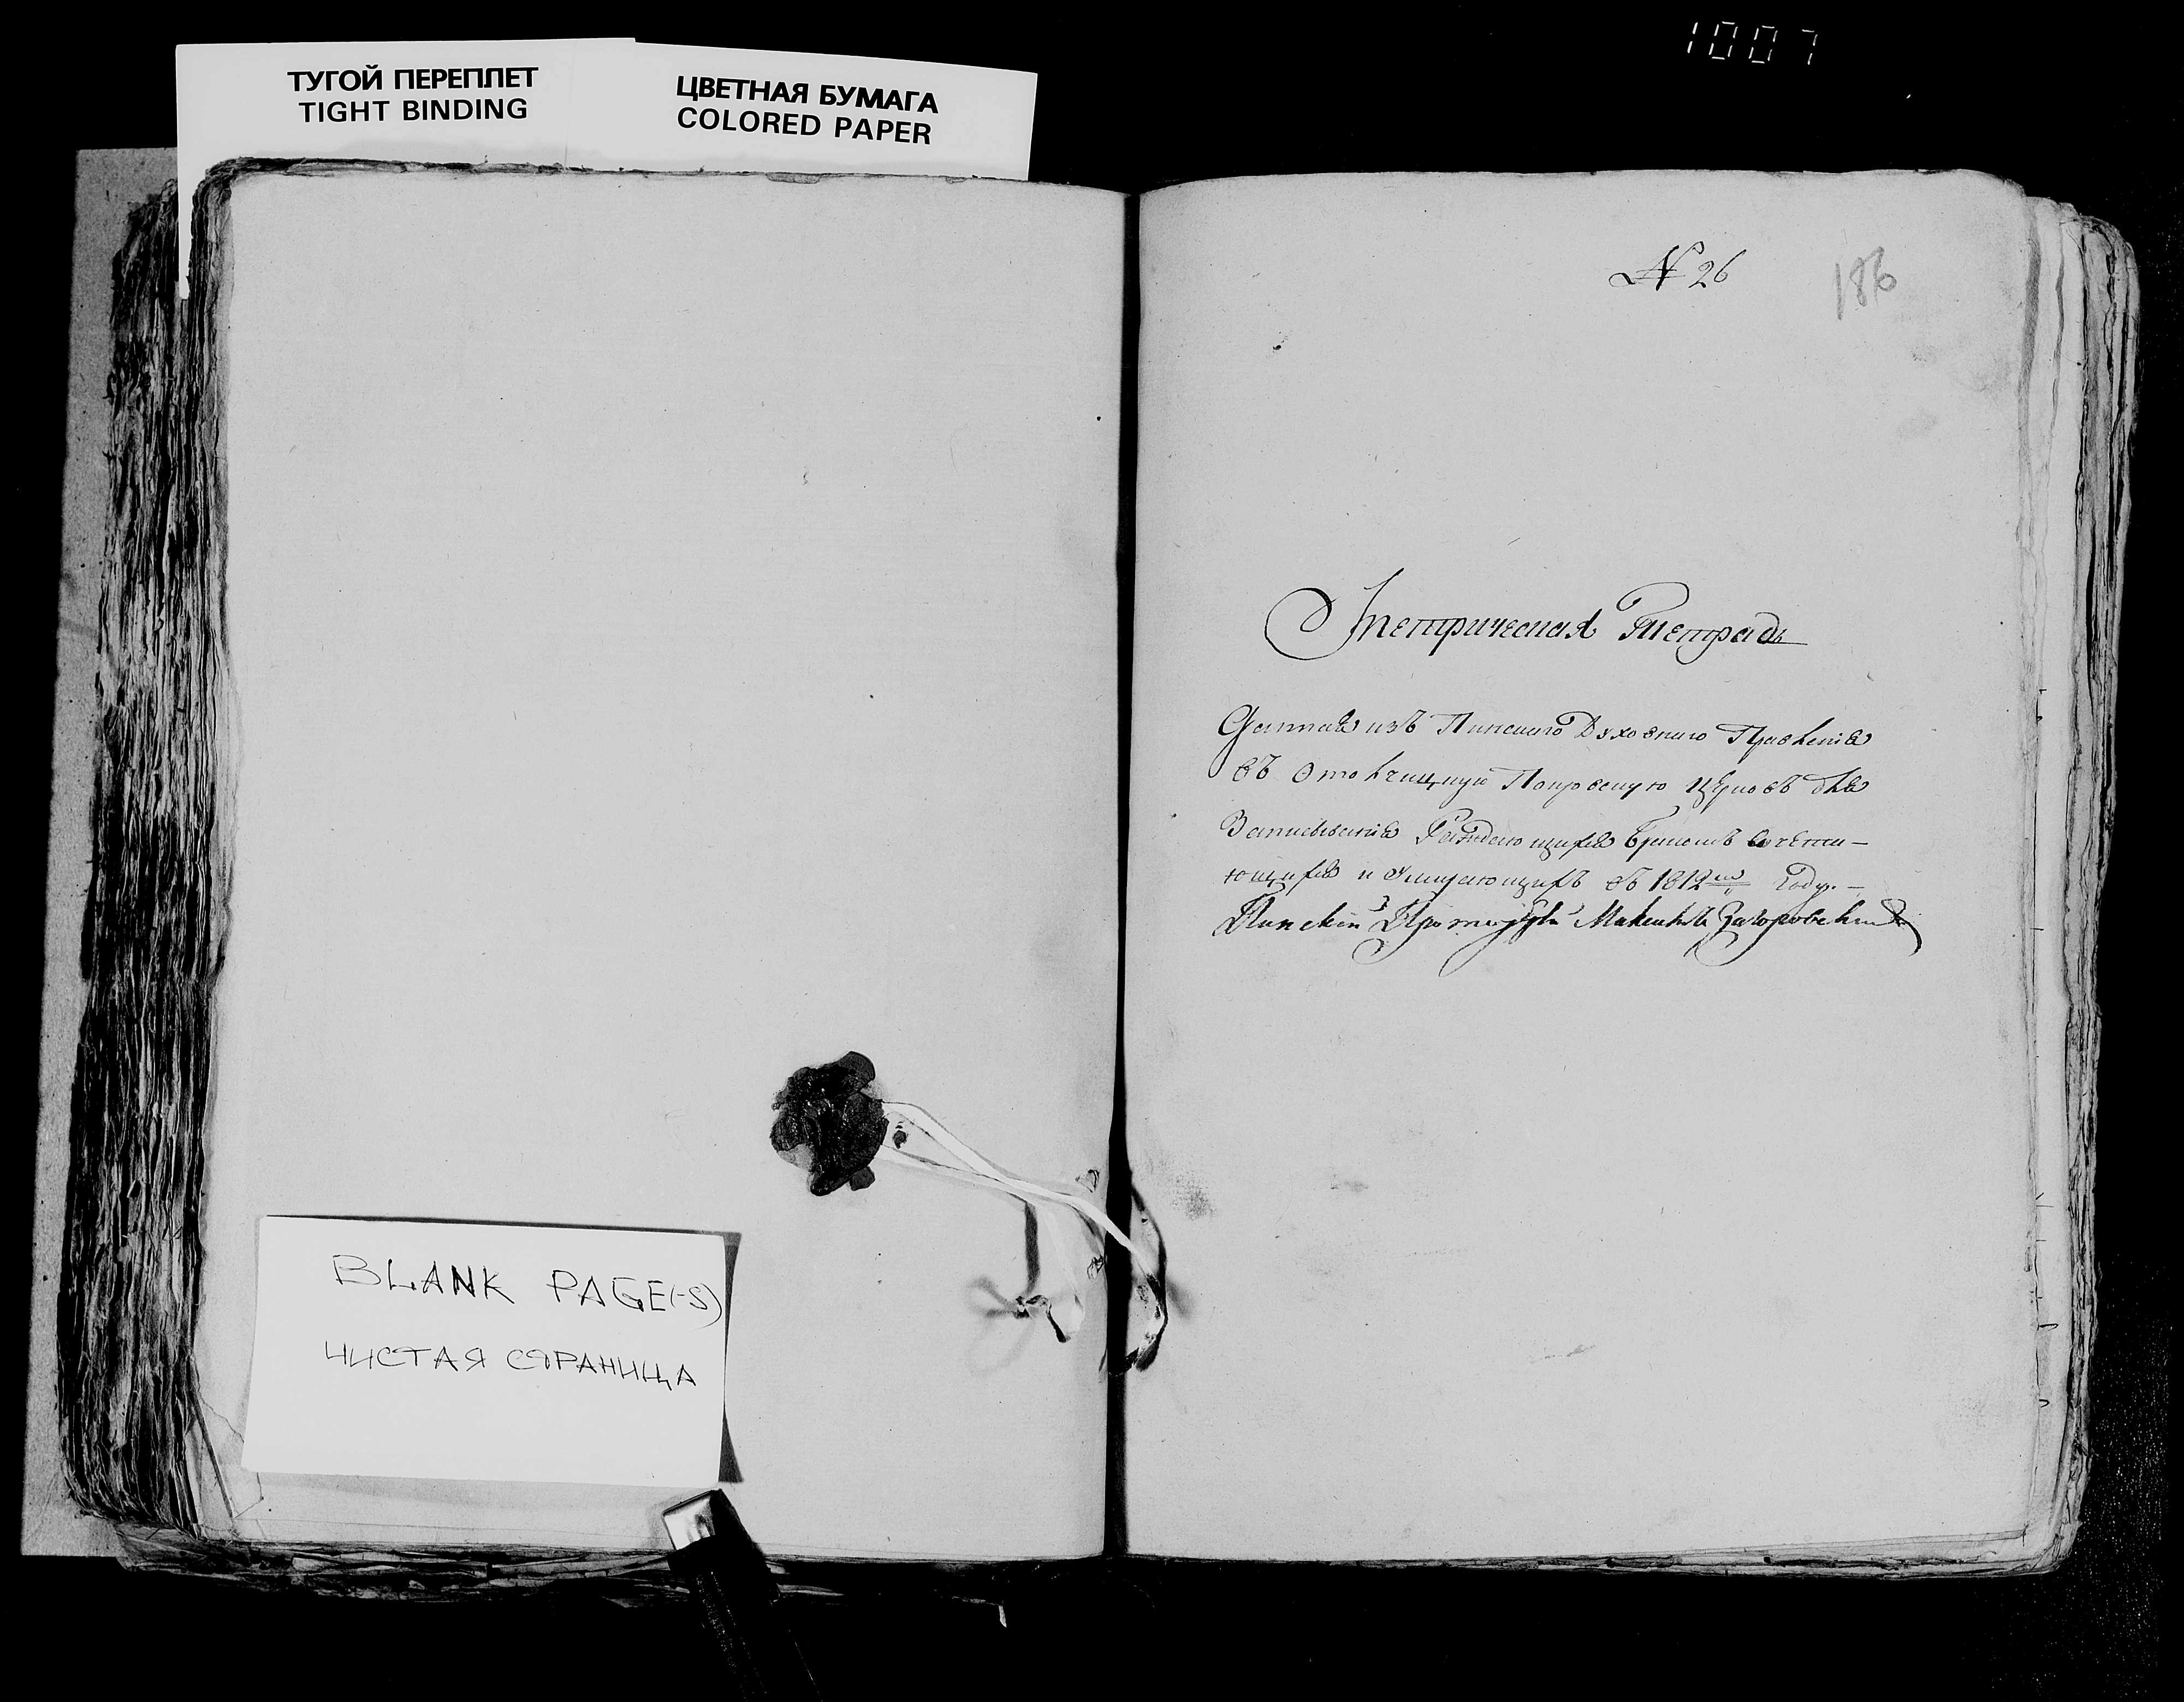 1007
ТУГОЙ ПЕРЕПЛЕТ
TIGHT BINDING
ЦВЕТНАЯ БУМАГА
COLORED PAPER
BLANK PAGE(-S)
ЧИСТАЯ СТРАНИЦА
N 26
186
Метрическая Тетрадь
Данная изъ Пинскаго Духовнаго Правленія
въ Отолчицкую Покровскую Церковь для
Записыванія Раждающихся Бракомъ сочета-
ющихся и Умирающихъ въ 1812мъ Году.-
Пинскій Протоіерей